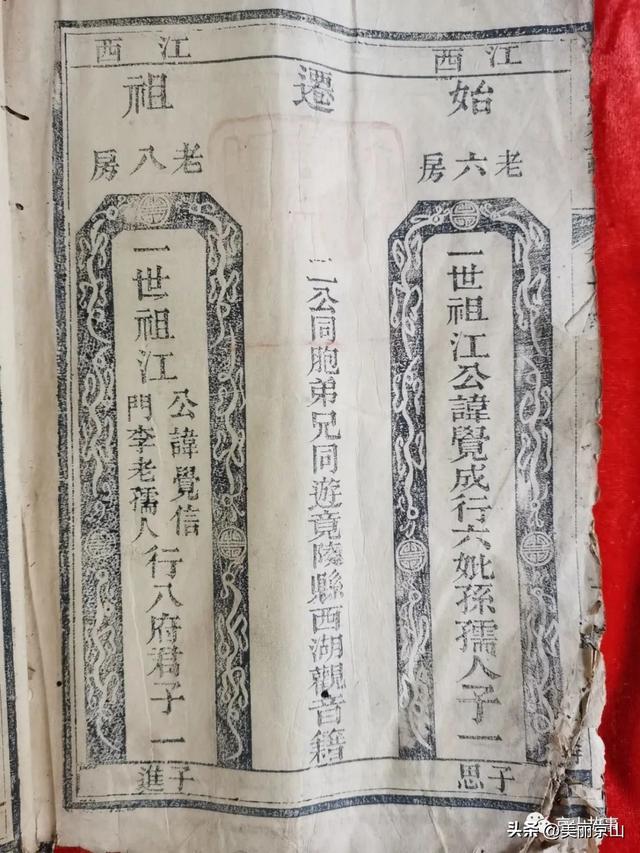 江西
江西
始遷祖
老六房
一世祖江公諱覺成行六妣孫孺人子一
子思
二公同胞弟兄同遊竟陵縣西湖觀音籍
老八房
一世祖江
公諱覺信
門李老孺人
行八府君子一
子進
头条 @美丽京山